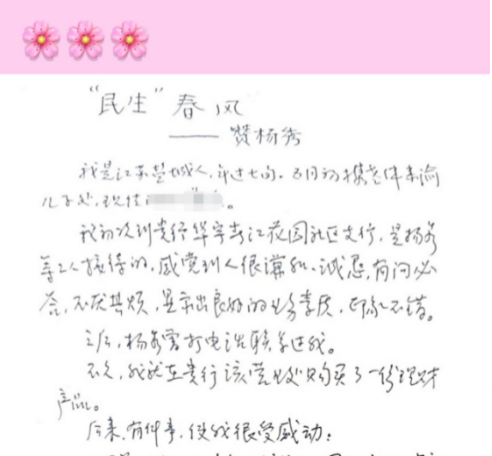 “民生”春风
——赞杨秀
我是江苏盐城人,年过七旬。五月初携老伴来渝
儿子处,现住
我初次到贵行华宇春江花园社区支行,是杨秀
等工人接待的,感觉到人很谦和、诚恳,有问必
答,不厌其烦,显示出良好的业务素质,印象不错。
之后,杨秀常打电话联系过我。
不久,我就在贵行该营业处购买了一份理财
产品。
后来,有件事,使我很受感动: